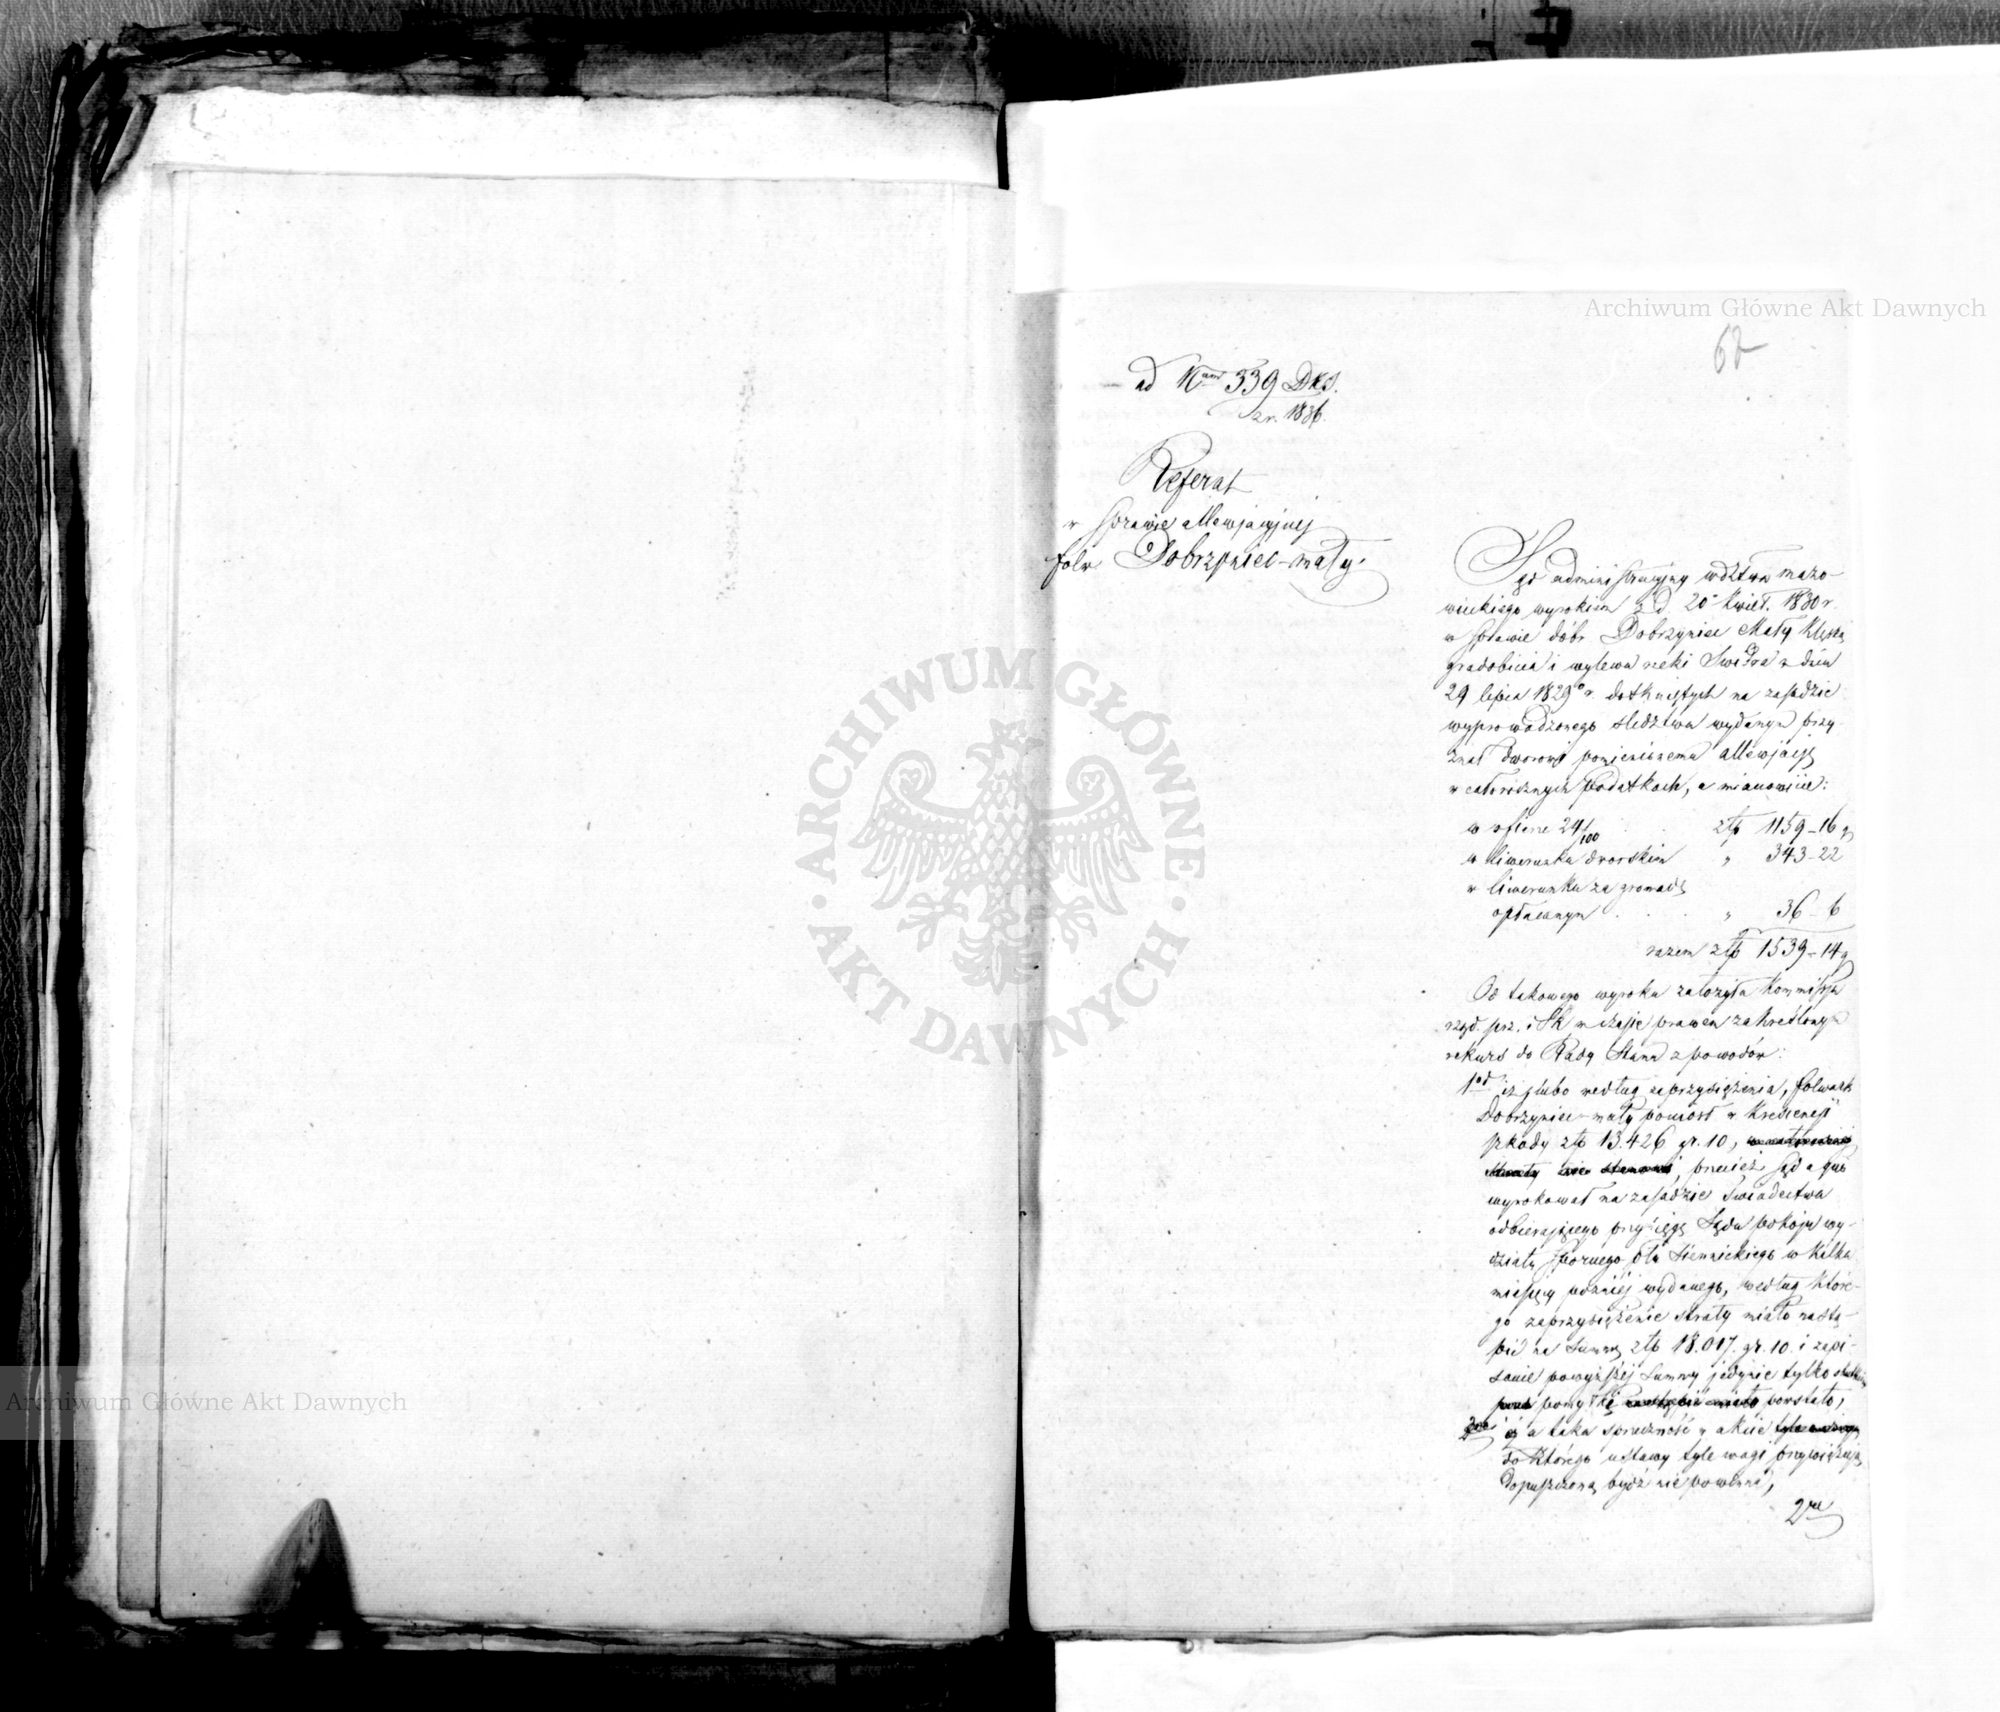 Archiwum Główne Akt Dawnych
62
ad Num 339 DKS.
z r. 1836.
Referat
w sprawie allewjacyjnej
folw Dobrzyniec-mały.
Sąd administracyjny wdztwa mazo-
wieckiego wyrokiem z d. 20 Kwiet. 1830 r.
w sprawie dóbr Dobrzyniec Mały Klęską
gradobicia i wylewu rzeki Swidra w dniu
29 lipca 1829 r. dotkniętych na zasadzie
wyprowadzonego śledztwa wydanym przy-
znał dworowi poniesionemu allewjacyę
w całorocznych podatkach, a mianowicie:
w ofierze 24/100 złp 1159-16 g
w liwerunku dworskim " 343-22
w liwerunku za gromadę
opłacanym " 36-6
razem złp 1539-14 g
Od takowego wyroku założyła Kommissya
rząd. prz. i Sk w czasie prawem zakreślonym
rekurs do Rady Stanu z powodów:
1od iż lubo według zaprzysiężenia, folwark
Dobrzyniec-mały poniósł w Krescencji
szkody złp 13.426 gr. 10, przecież Sąd a quo
wyrokował na zasadzie świadectwa
odbierającego przysięgę Sądu pokoju wy-
działu Spornego ptu Siennickiego w kilka
miesięcy później wydanego, według które-
go zaprzysiężenie straty miało nastą-
pić na Summę złp 18.017. gr. 10. i zapi-
sanie powyższej Summy jedynie tylko skutkiem
pomyłki powstało,
a taka sprzeczność w akcie
do którego ustawy tyle wagi przywiązują
dopuszczoną bydź nie powinna,
2re
ARCHIWUM GŁÓWNE AKT DAWNYCH
Archiwum Główne Akt Dawnych